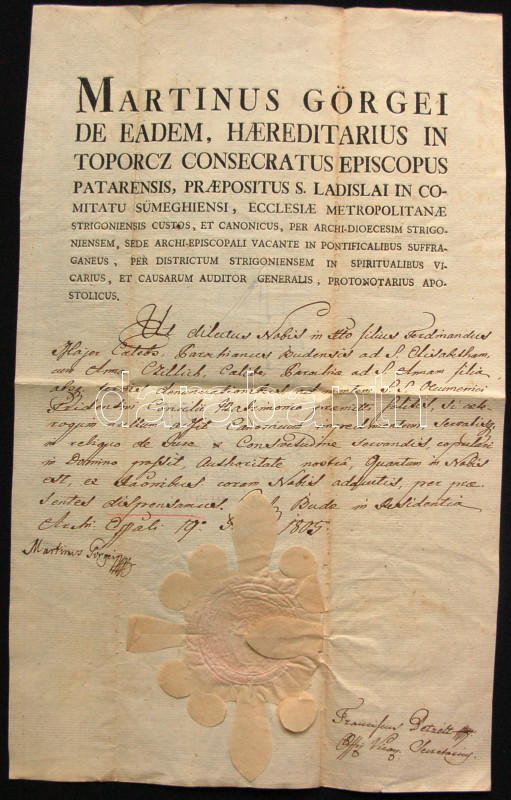 MARTINUS GÖRGEI
DE EADEM, HÆREDITARIUS IN
TOPORCZ CONSECRATUS EPISCOPUS
PATARENSIS, PRÆPOSITUS S. LADISLAI IN CO-
MITATU SÜMEGHIENSI, ECCLESIÆ METROPOLITANÆ
STRIGONIENSIS CUSTOS, ET CANONICUS, PER ARCHI-DIOECESIM STRIGO-
NIENSEM, SEDE ARCHI-EPISCOPALI VACANTE IN PONTIFICALIBUS SUFFRA-
GANEUS, PER DISTRICTUM STRIGONIENSEM IN SPIRITUALIBUS VI-
CARIUS, ET CAUSARUM AUDITOR GENERALIS, PROTONOTARIUS APO-
STOLICUS.
Ut dilectus Nobis in Xto filius Ferdinandus
Major Caelebs, Parochianus Budensis ad S. Elisabetham,
cum Anna Caelebe Parochiae ad S. Annam filia,
absque denunciationibus ad mentem S.S. Oecumenici
Tridentini Concilii Matrimonio praemitti solitis, si cae-
terum nullum aliud Canonicum
in reliquo de Jure & Consvetudine servandis, copulari
in Domino possit, Authoritate nostra, Quantum in Nobis
est, ex rationibus coram Nobis adductis, per prae-
sentes dispensamus. Budae in Residentia
Archi Eppali 19 1805.
Martinus Görgei
darabanth
Franciscus
Secretarius